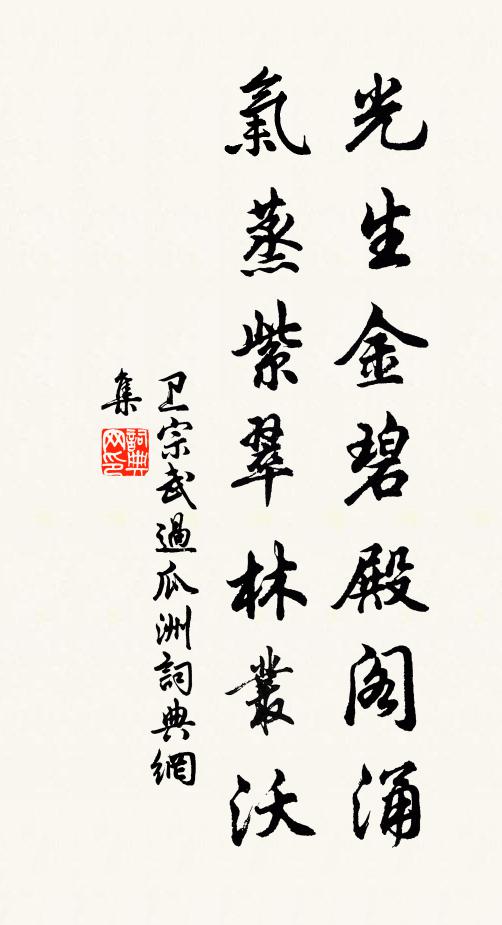 光生金碧殿阁涌
氣蒸紫翠林叢沃
卫宗武過瓜洲詞典網
集
詞典网印